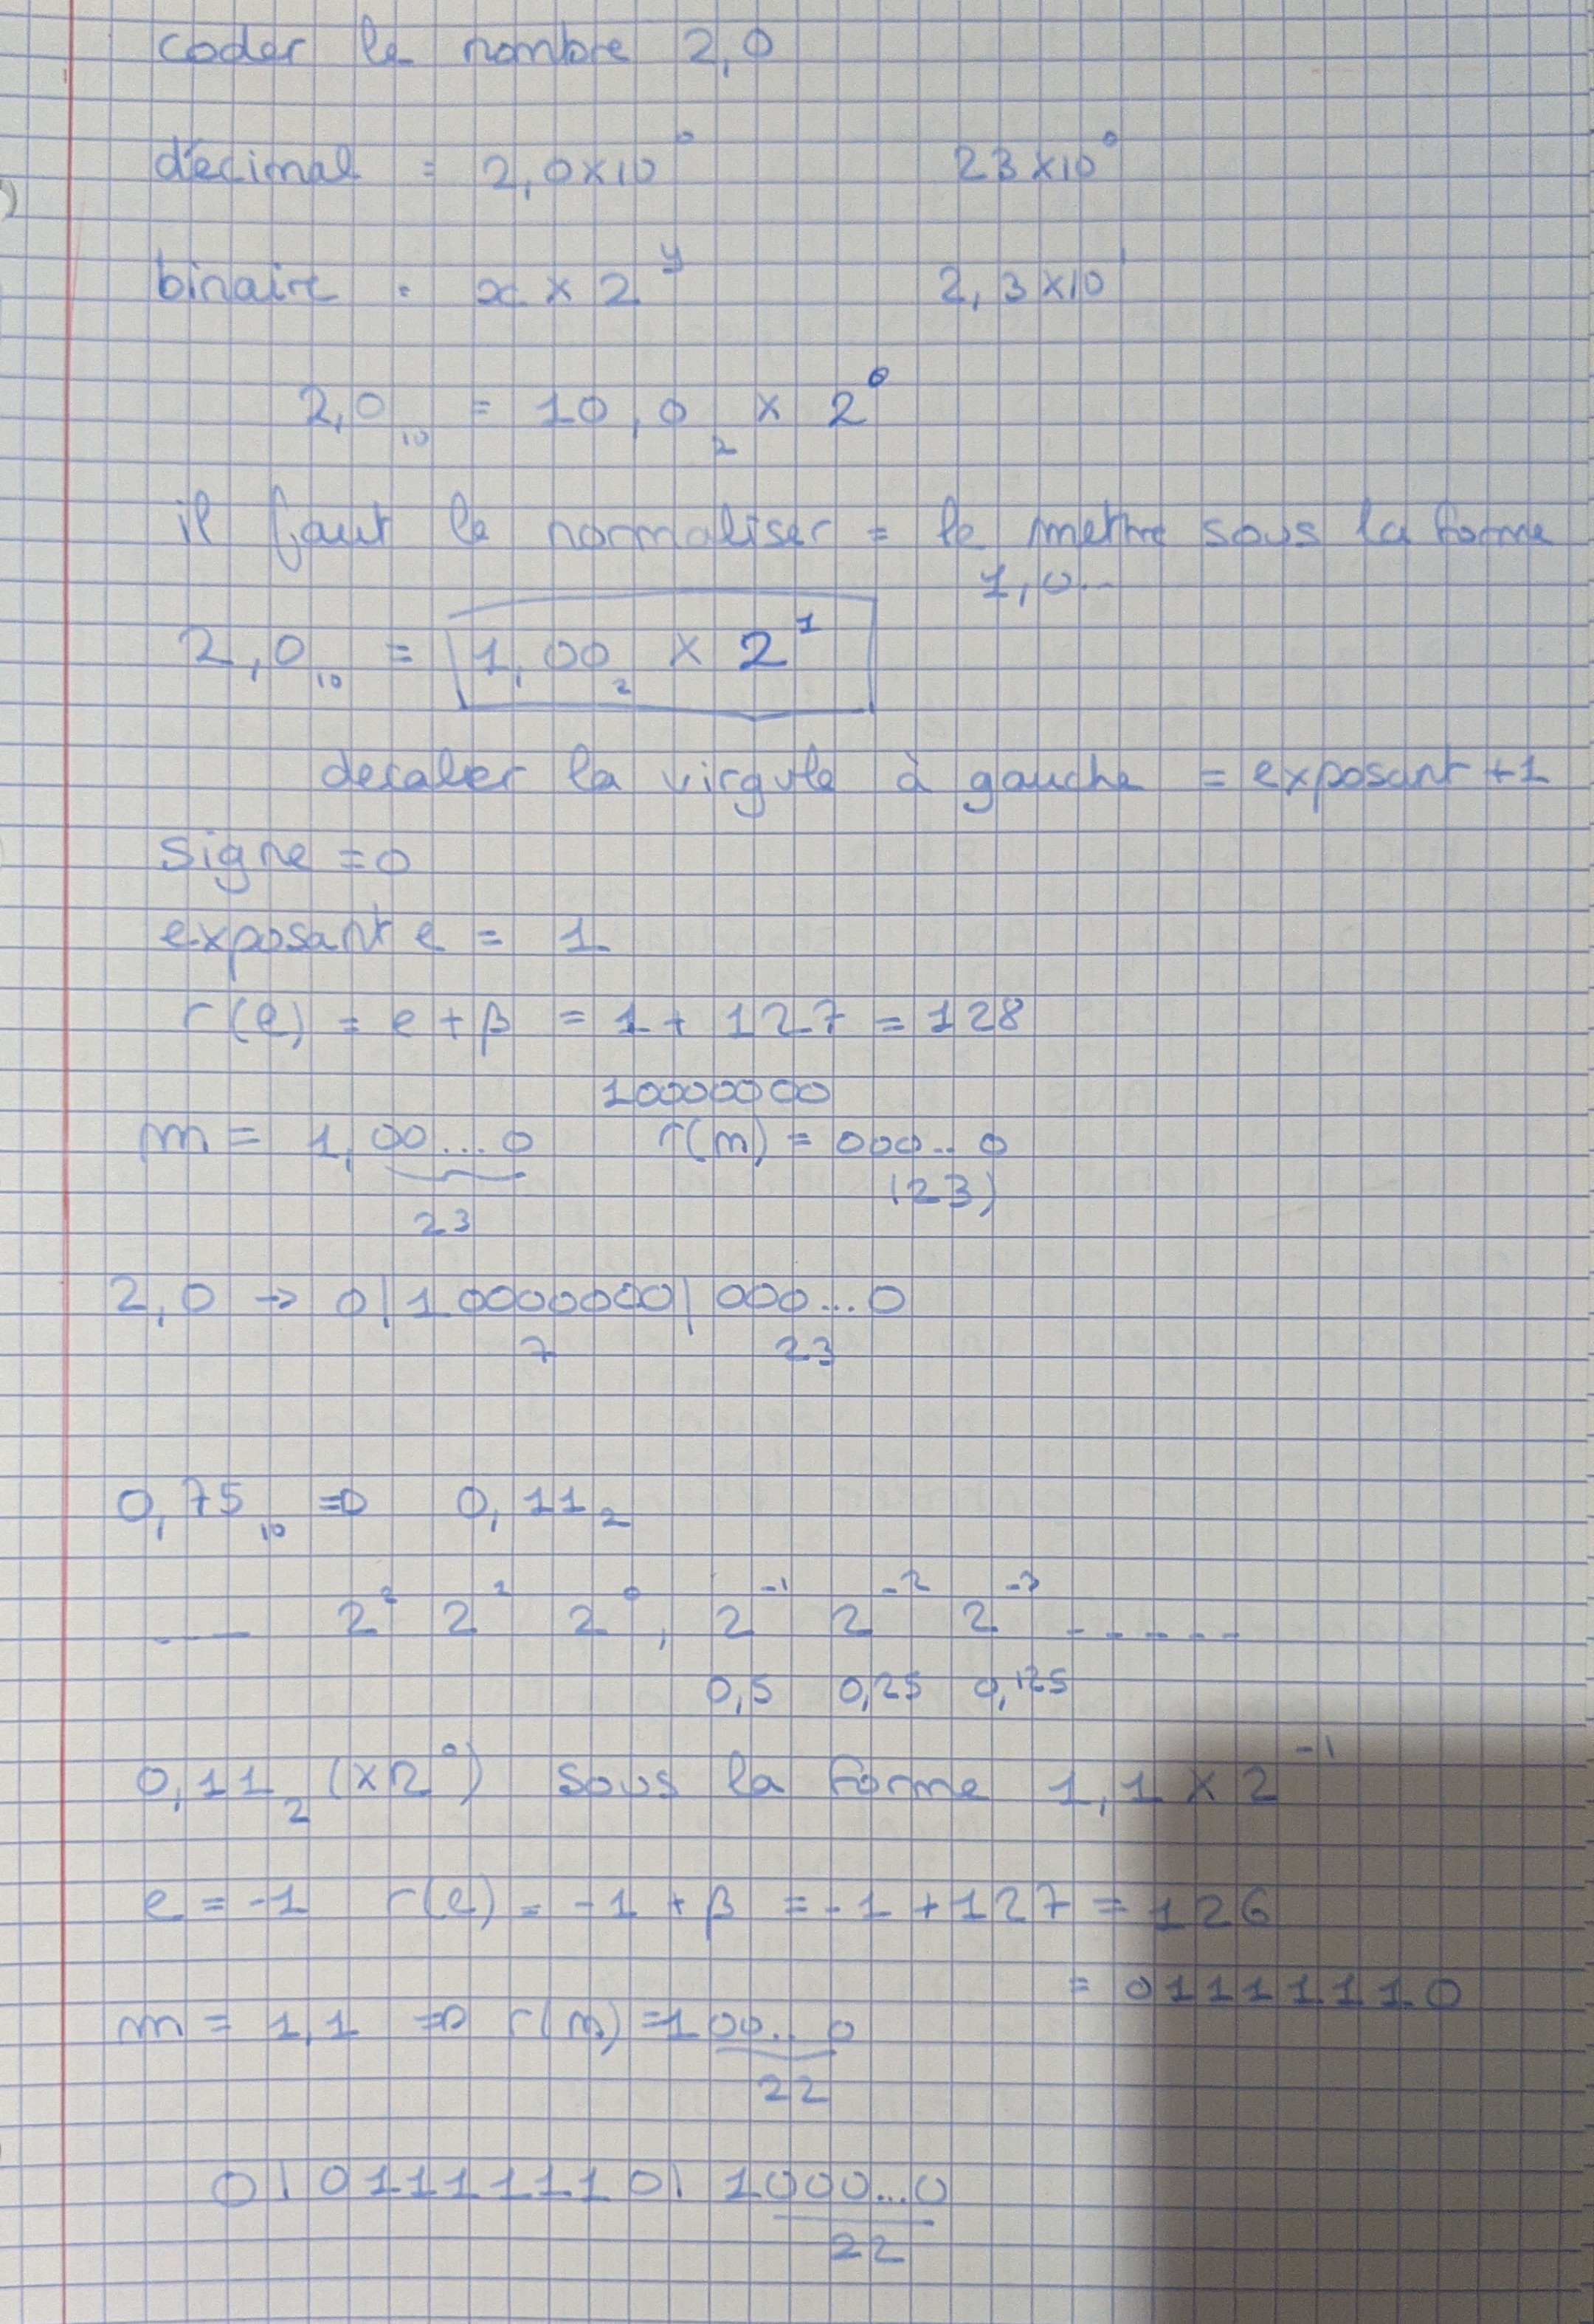 coder le nombre 2,0
décimal = 2,0×10⁰ 23×10⁰
binaire . x × 2ʸ 2,3×10¹
2,0₁₀ = 10,0₂ × 2⁰
il faut le normaliser = le mettre sous la forme
1,0...
2,0₁₀ = 1,00₂ × 2¹
decaler la virgule à gauche = exposant +1
signe = 0
exposant e = 1
r(e) = e + β = 1 + 127 = 128
10000000
m = 1,00...0 r(m) = 000...0
23 (23)
2,0 → 0|10000000| 000...0
7 23
0,75₁₀ => 0,11₂
___ 2² 2¹ 2⁰ , 2⁻¹ 2⁻² 2⁻³ -----
0,5 0,25 0,125
0,11₂ (×2⁰) sous la forme 1,1 × 2⁻¹
e = -1 r(e) = -1 + β = -1 + 127 = 126
= 01111110
m = 1,1 => r(m) = 100...0
22
0|01111110| 1000...0
22